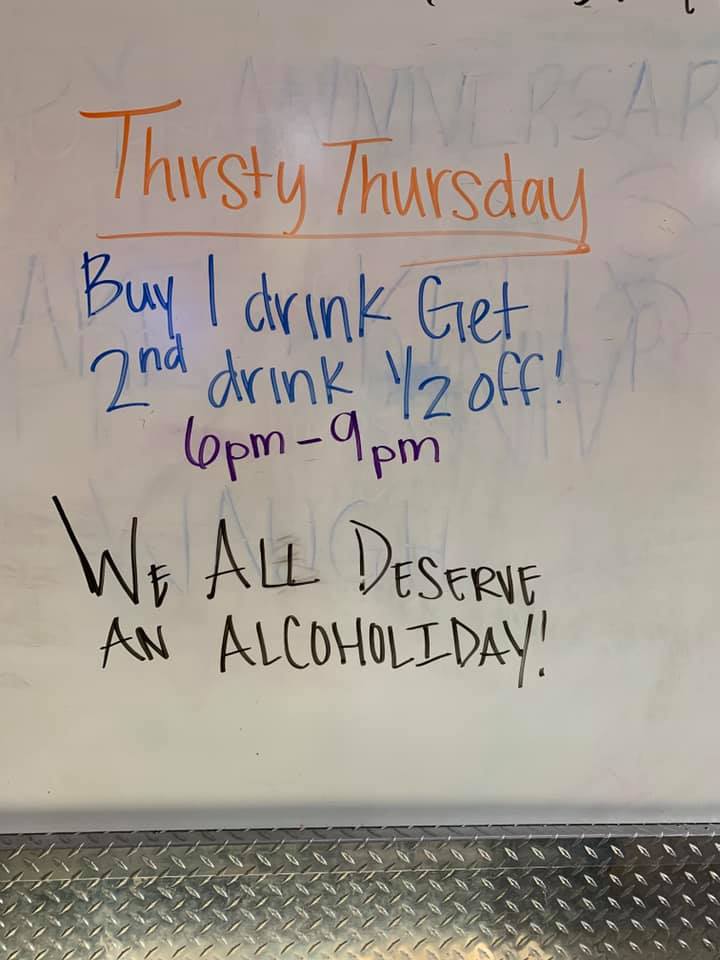 ANNIVERSAR
Thirsty Thursday
Buy 1 drink Get
2nd drink 1/2 off!
6pm - 9pm
We All Deserve
AN ALCOHOLIDAY!